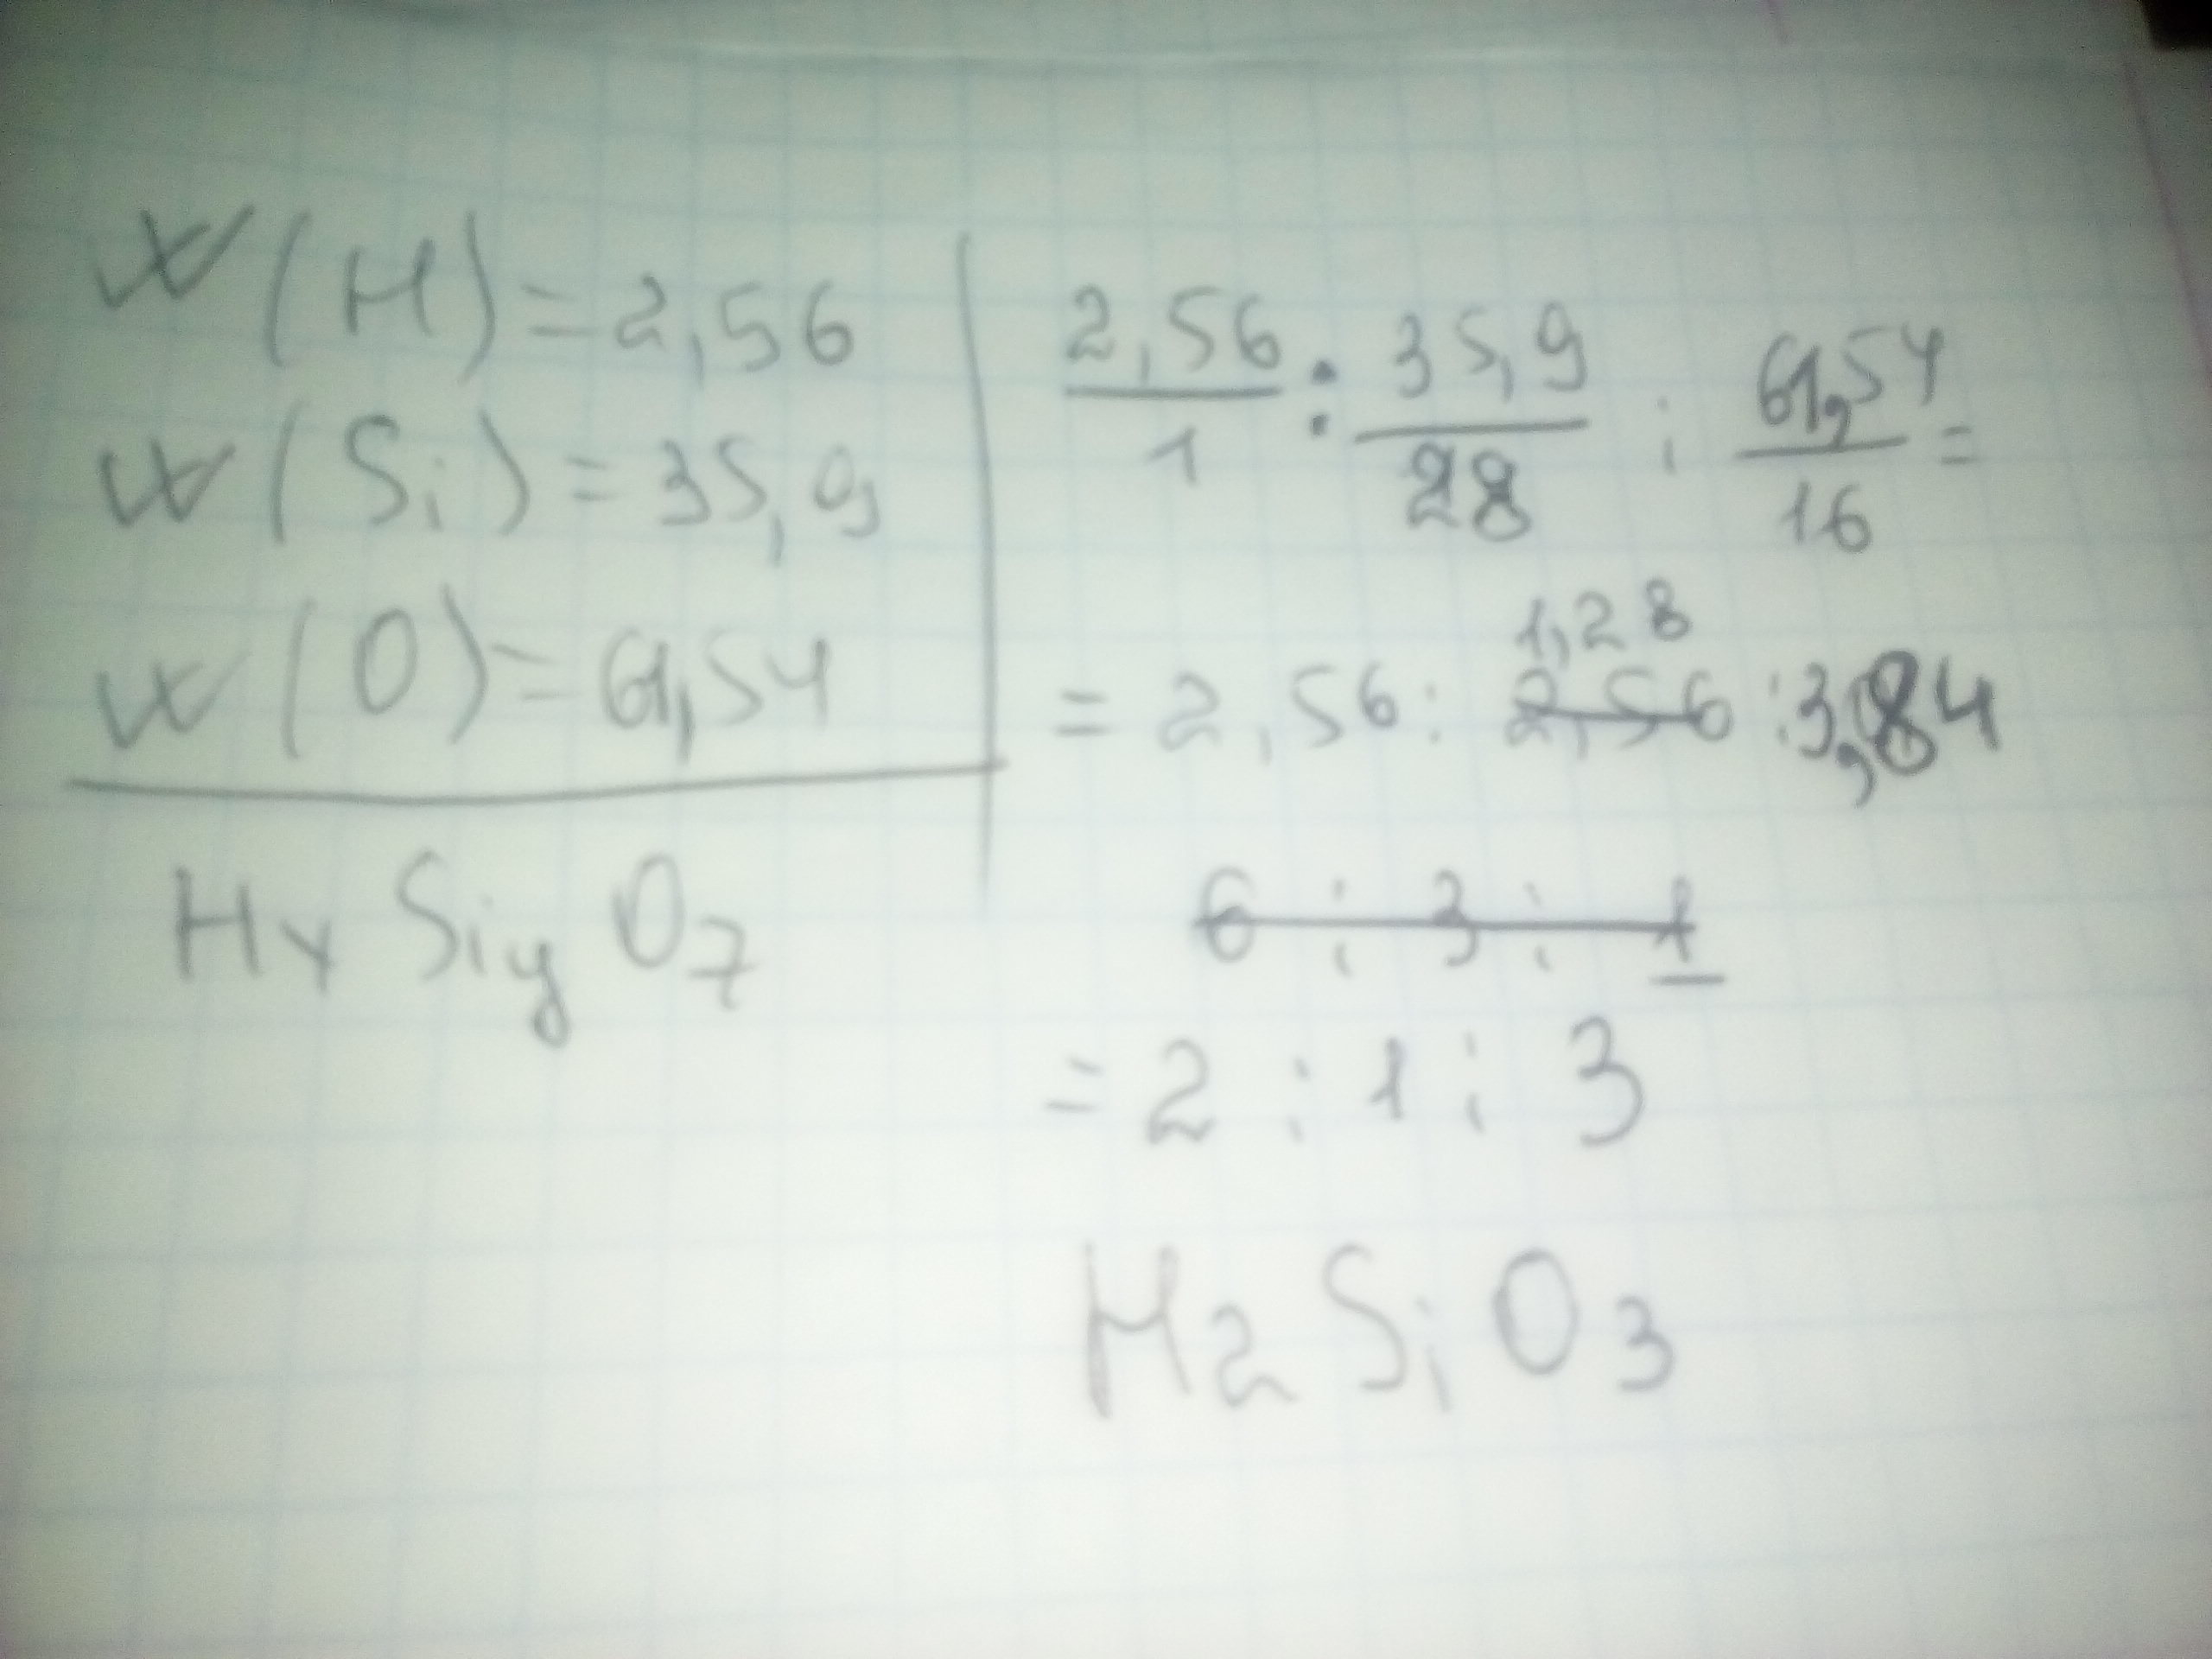 W(H)=2,56
W(Si)=35,9
W(O)=61,54
HxSiyOz
2,56/1 : 35,9/28 : 61,54/16 =
1,28
= 2,56 : 2,56 : 3,84
6 : 3 : 1
= 2 : 1 : 3
H2SiO3